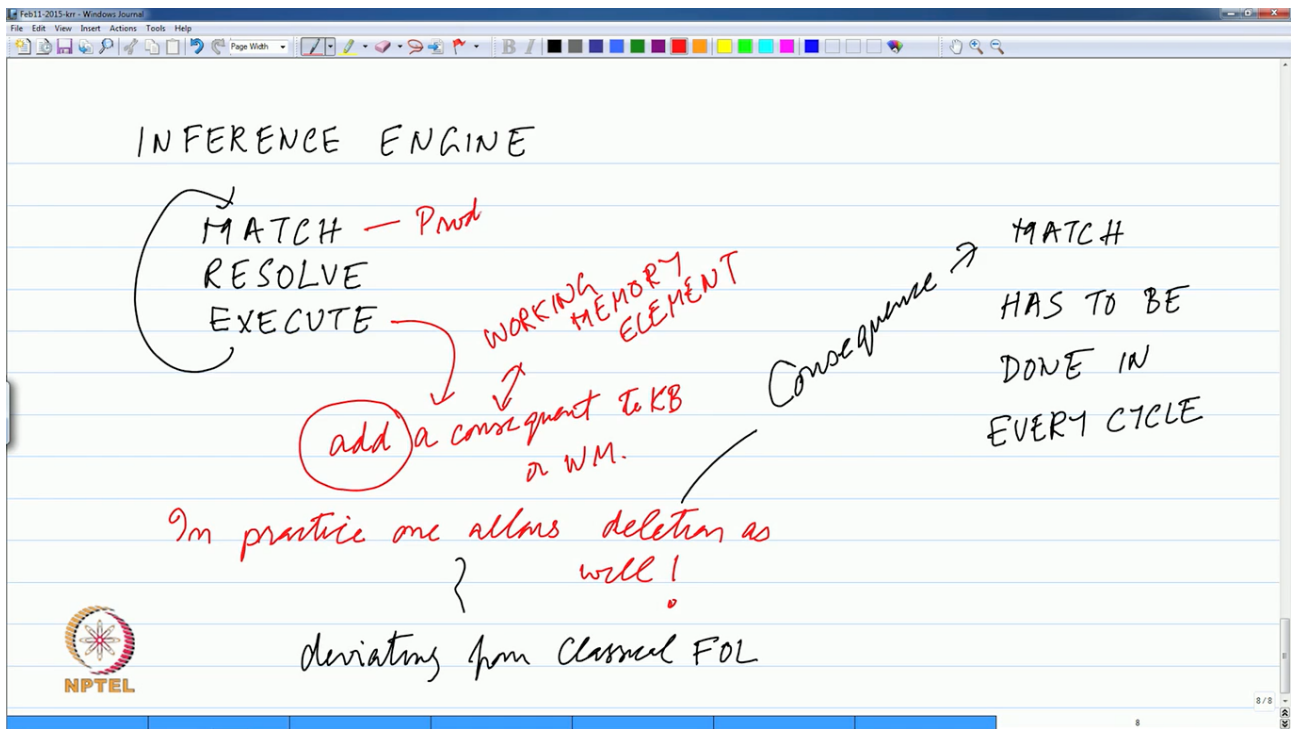 Feb11-2015-krr - Windows Journal
File Edit View Insert Actions Tools Help
Page Width
B I
INFERENCE ENGINE
MATCH — Prod
RESOLVE
EXECUTE
WORKING
MEMORY
ELEMENT
add a consequent to KB
or WM.
In practice one allows deletion as
well!
deviating from Classical FOL
Consequence
MATCH
HAS TO BE
DONE IN
EVERY CYCLE
NPTEL
8/8
8